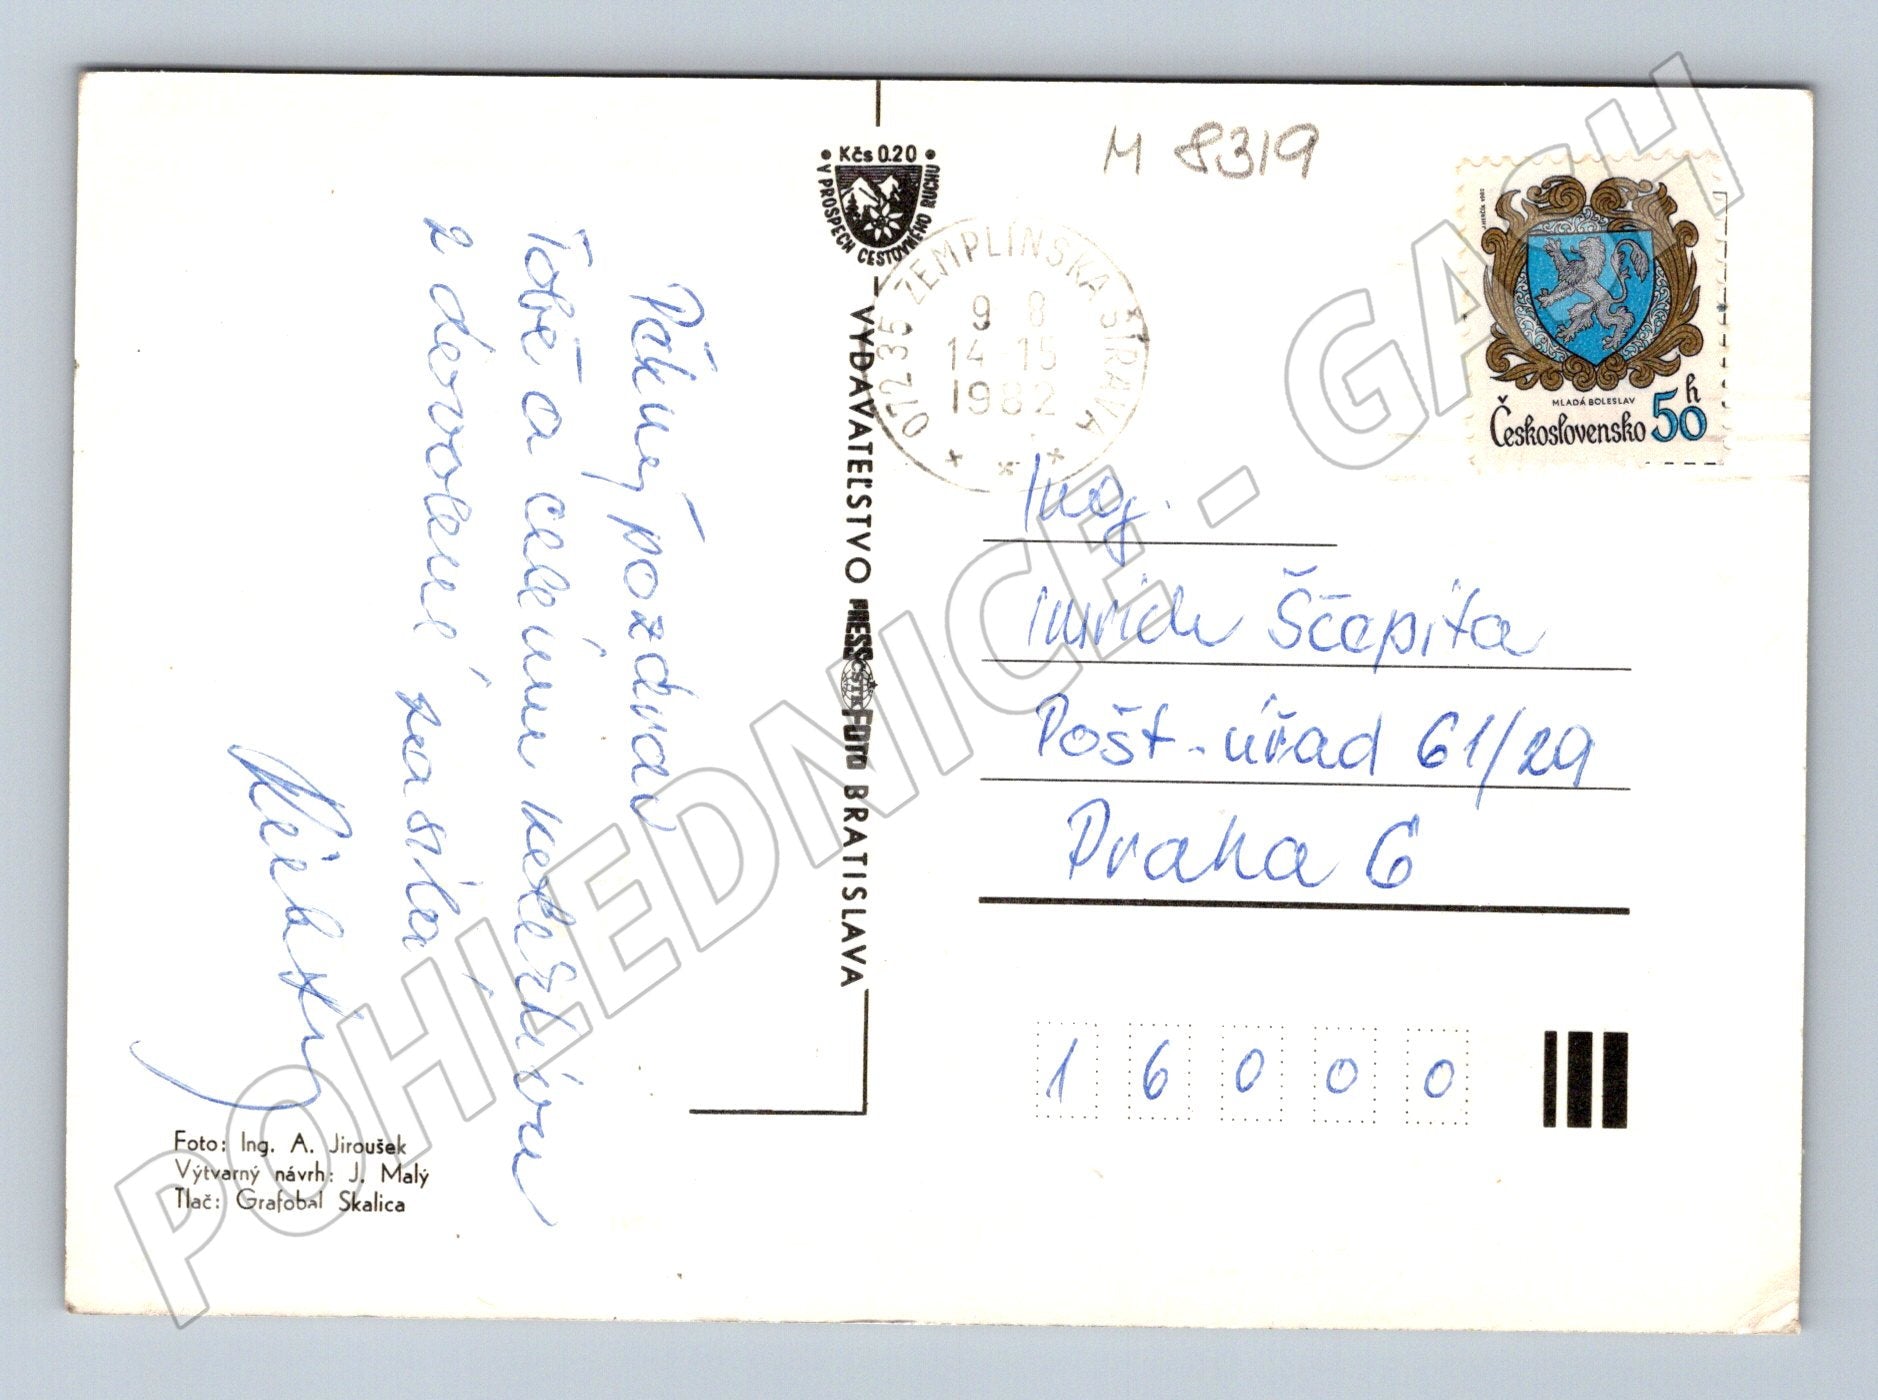 Pěkný pozdrav
Tobě a celému kolektivu
z dovolené zasílá
Foto: Ing. A. Jiroušek
Výtvarný návrh: J. Malý
Tlač: Grafobal Skalica
• Kčs 0.20 •
V PROSPECH CESTOVNÉHO RUCHU
VYDAVATEĽSTVO PRESSFOTO BRATISLAVA
ČSTK
M 8319
072 35 ZEMPLÍNSKA ŠÍRAVA
9 8
14-15
1982
* * *
MLADÁ BOLESLAV
Československo 50 h
Ing.
Imrich Ščepita
Pošt. úřad 61/29
Praha 6
16000
POHLEDNICE - GASH